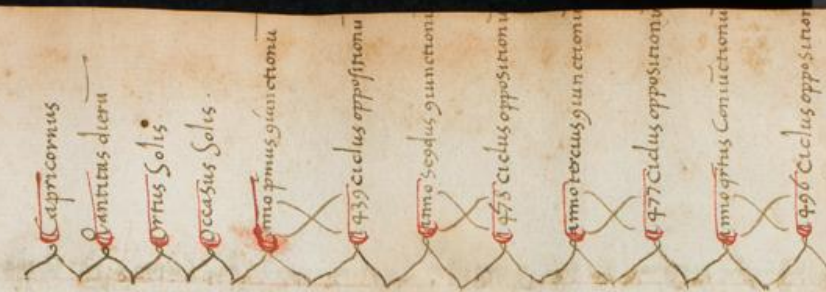 Capricornus
Qantitas dieru
Ortus Solis
Occasus Solis.
Anno pmus giunctionu
1439 Ciclus oppositionu
Anno segdus giunctionu
1475 Ciclus oppositionu
Anno tercius giunctionu
1477 Ciclus oppositionu
Anno qrtus Coniuctionu
1496 Ciclus oppositionu